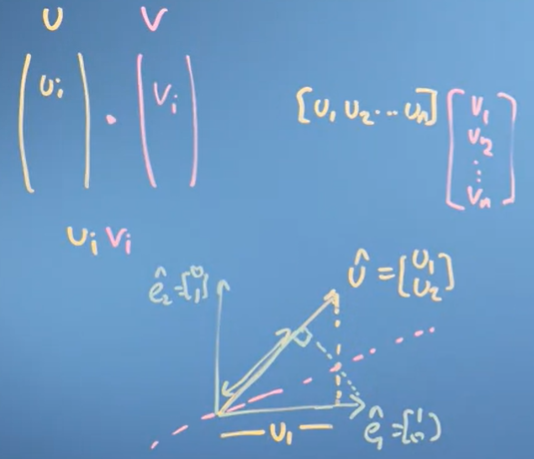 U V
(Ui) · (Vi)
[U1 U2 ... Un] [V1 V2 ⋮ Vn]
Ui Vi
ê2 = [0 1]
Û = [U1 U2]
U1
ê1 = [1 0]